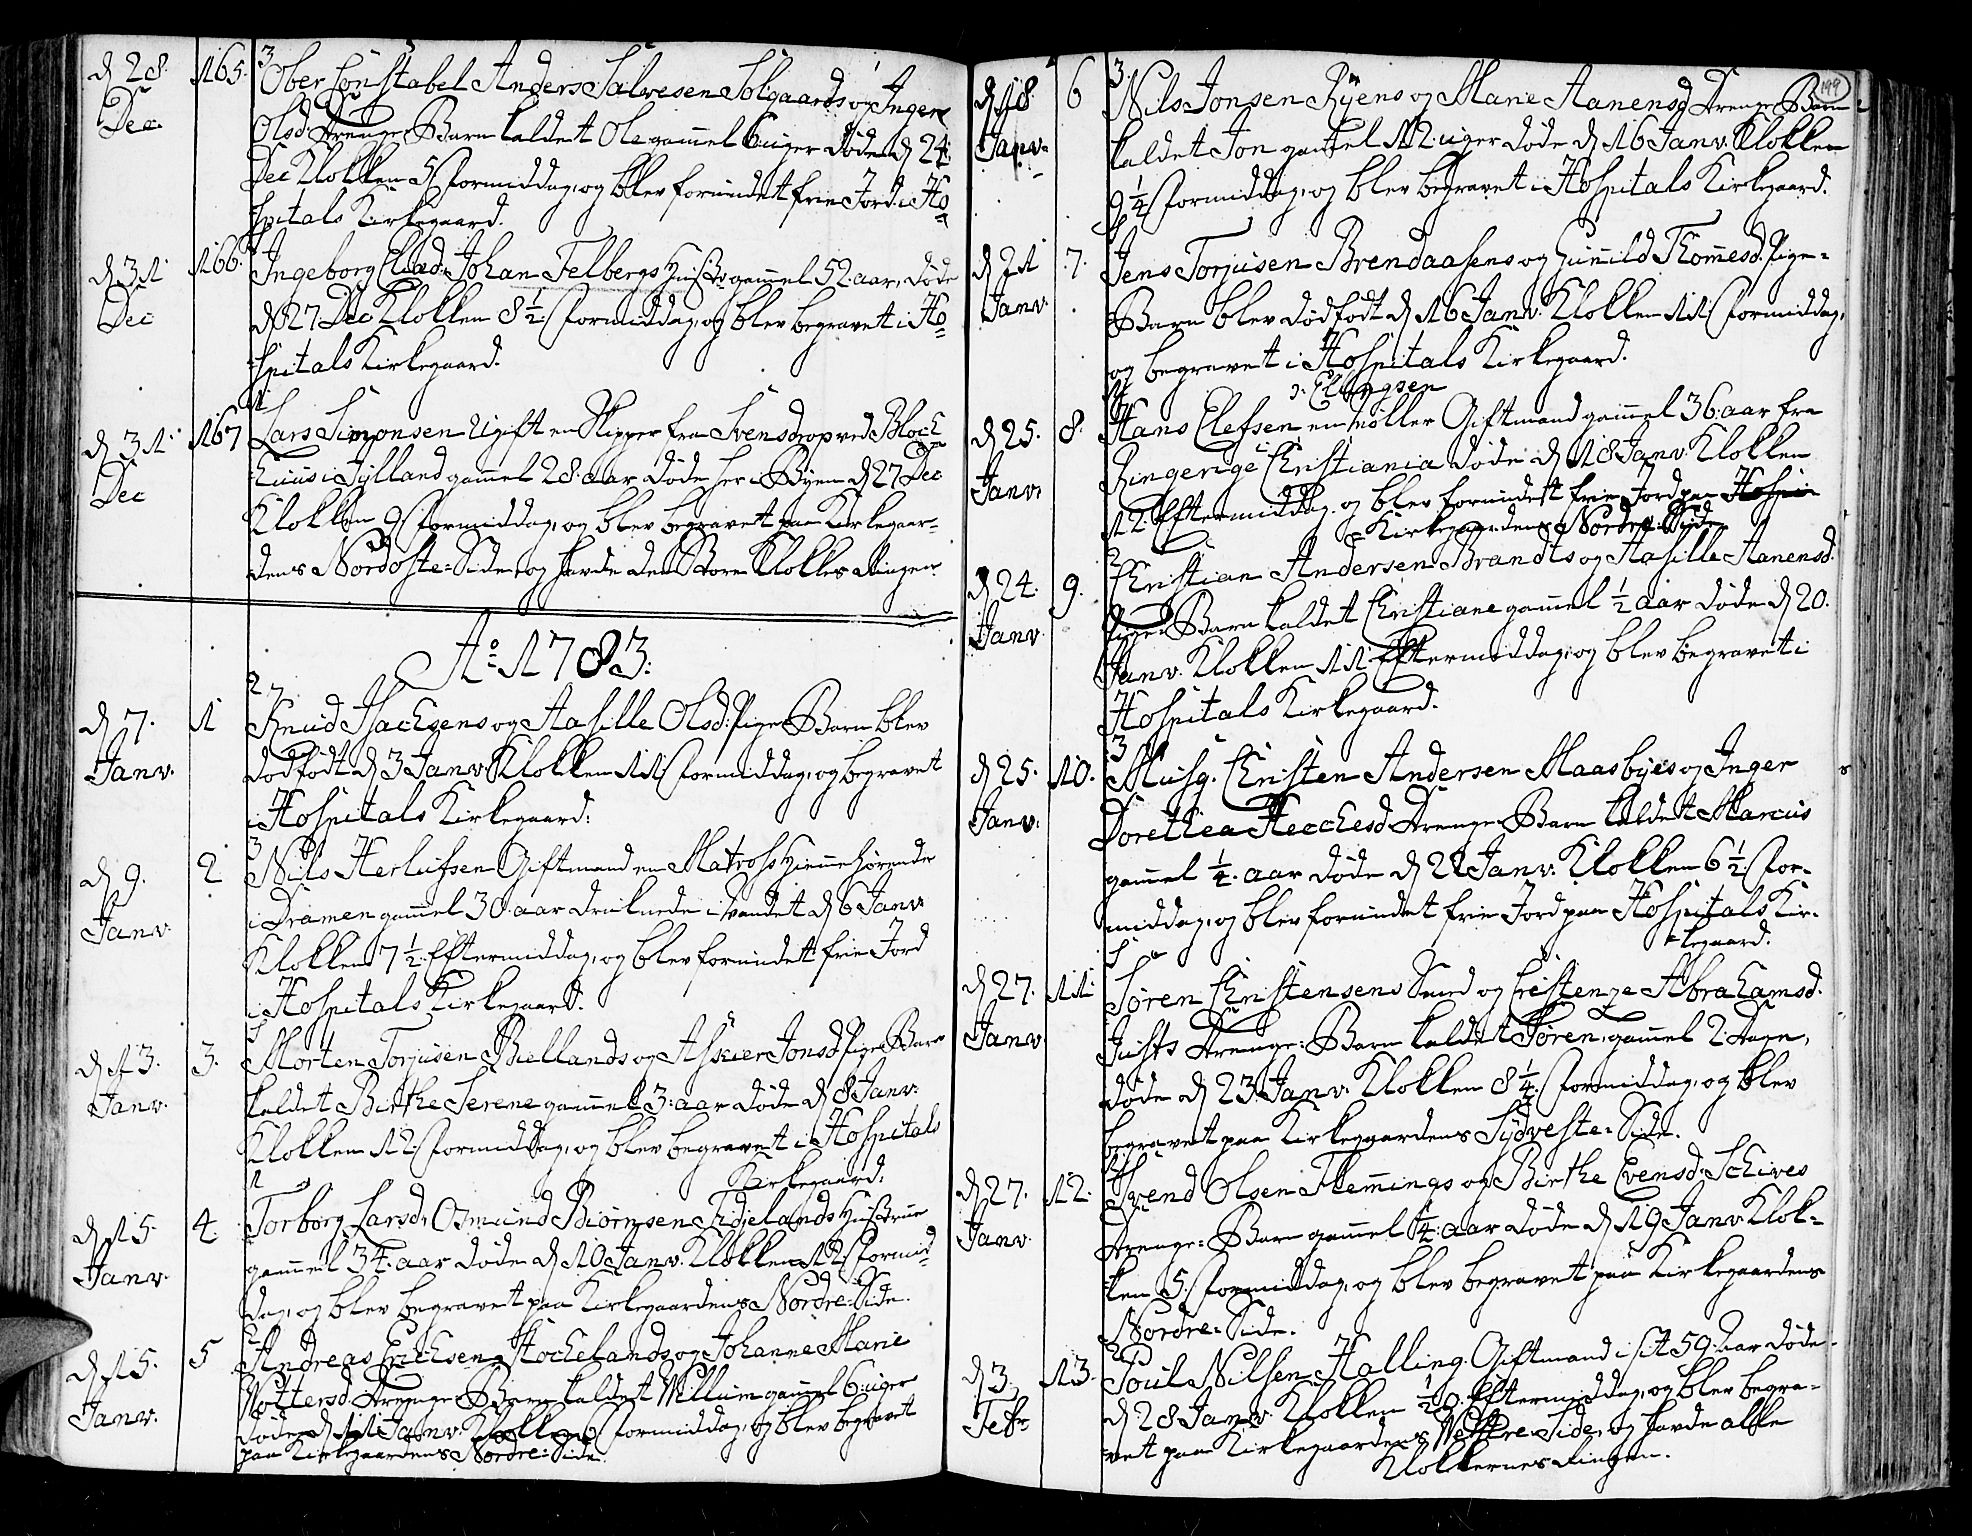 d 28. Dec. 165. 3
Ober Constabel Anders Salvesen Solgaards og Inger
Olsd. Drenge Barn kaldet Ole gammel 6 uger døde d 24
Dec Klokken 5 Formiddag, og blev forundet frie Jord i Ho=
spitals Kirkegaard.
d 31 Dec 166.
Ingeborg Johan Felbergs Hustr. gammel 52 aar, døde
d 27 Dec Klokken 8 1/2 Formiddag, og blev begravet i Ho=
spitals Kirkegaard.
d 31. Dec 167 1
Lars Simonsen Ugift en Skipper fra Svensdrop ved Block=
Huus i Jylland gammel 28. aar døde her i Byen d 27 Dec
Klokken 9 Formiddag, og blev begravet paa Kirkegaar=
dens Nordoste=Side, og havde den Store Klokkes Ringen.
Ao 1783.
d 7. Janv. 1 2
Knud Isachsens og Aasille Olsd. Pige Barn blev
dødfødt d 3 Janv. Klokken 11 Formiddag, og begravet
i Hospitals Kirkegaard.
d 9. Janv. 2 3
Nils Herlufsen Giftmand en Matros Hiemmehørende
i Dramen gammel 30. aar druknede i Vandet d 6 Janv.
Klokken 7 1/2. Eftermiddag, og blev forundet frie Jord
i Hospitals Kirkegaard.
d 13. Janv. 3.
Morten Torjusen Biellands og Jonsd Pige Barn
kaldet Birthe Serene gammel 3. aar døde d 8 Janv.
Klokken 12. Formiddag, og blev begravet i Hospitals
Kirkegaard.
d 15 Janv. 4. 1
Torborg Larsdr. Osmund Biørnsen Hustrue
gammel 34. aar døde d 10 Janv. Klokken 12. Formid=
dag, og blev begravet paa Kirkegaardens Nordre=Side.
d 15. Janv. 5 2
Andreas Erichsen Hochelands og Johanne Marie
Wottersd. Drenge=Barn kaldet Willum gammel 6 uger
døde d 11 Janv. Klokken Formiddag, og blev begravet
paa Kirkegaardens Nordre=Side.
199
d 18. Janv. 6 3.
Nils Jonsen Ryens og Marie Aanensd Drenge Barn
kaldet Jon gammel 12. uger døde d 16 Janv. Klokken
9 1/4 Formiddag, og blev begravet i Hospitals Kirkegaard.
d 21 Janv. 7.
Jens Torjusen Brendaasens og Gunnild Thommesd. Pige=
Barn blev dødfødt d 16 Janv. Klokken 11 Formiddag,
og begravet i Hospitals Kirkegaard.
Ellingsen
d 25. Janv. 8.
Hans Elefsen en Møller Giftmand gammel 36. aar fra
Ringerige i Christiania døde d 18 Janv. Klokken
12. Eftermiddag. og blev forundet frie Jord paa Hospi=
Kirkegaardens Nordre Side
d 24. Janv. 9. 2
Christian Andersen Brandts og Aasille Aanensd.
Pige=Barn kaldet Christiane gammel 1/2 aar døde d 20.
Janv. Klokken 11 Eftermiddag, og blev begravet i
Hospitals Kirkegaard.
d 25. Janv. 10. 3
Musq. Christen Andersen Maasbyes og Inger
Dorethea Drenge=Barn kaldet Marcus
gammel 1/4. aar døde d 22 Janv. Klokken 6 1/2. For=
middag, og blev forundet frie Jord paa Hospitals Kir=
kegaard.
d 27. Janv. 11
Søren Christensens Smed og Abrahamsd.
Drenge=Barn kaldet Søren, gammel 2. Dage,
døde d 23. Janv. Klokken 8 1/4. Formiddag, og blev
begravet paa Kirkegaardens Sydveste=Side.
d 27. Janv. 12.
Svend Olsen Flemmings og Birthe Evensd. Schives
Drenge=Barn gammel 1/4. aar døde d 19 Janv. Klok=
ken 5. Formiddag, og blev begravet paa Kirkegaardens
Nordre=Side.
d 3. Febr 13. 2
Poul Nilsen Halling. Giftmand i sit 59. aar døde
d 28 Janv. Klokken Eftermiddag, og blev begra=
vet paa Kirkegaardens Vestre=Side, og havde alle
Klokkernes Ringen.